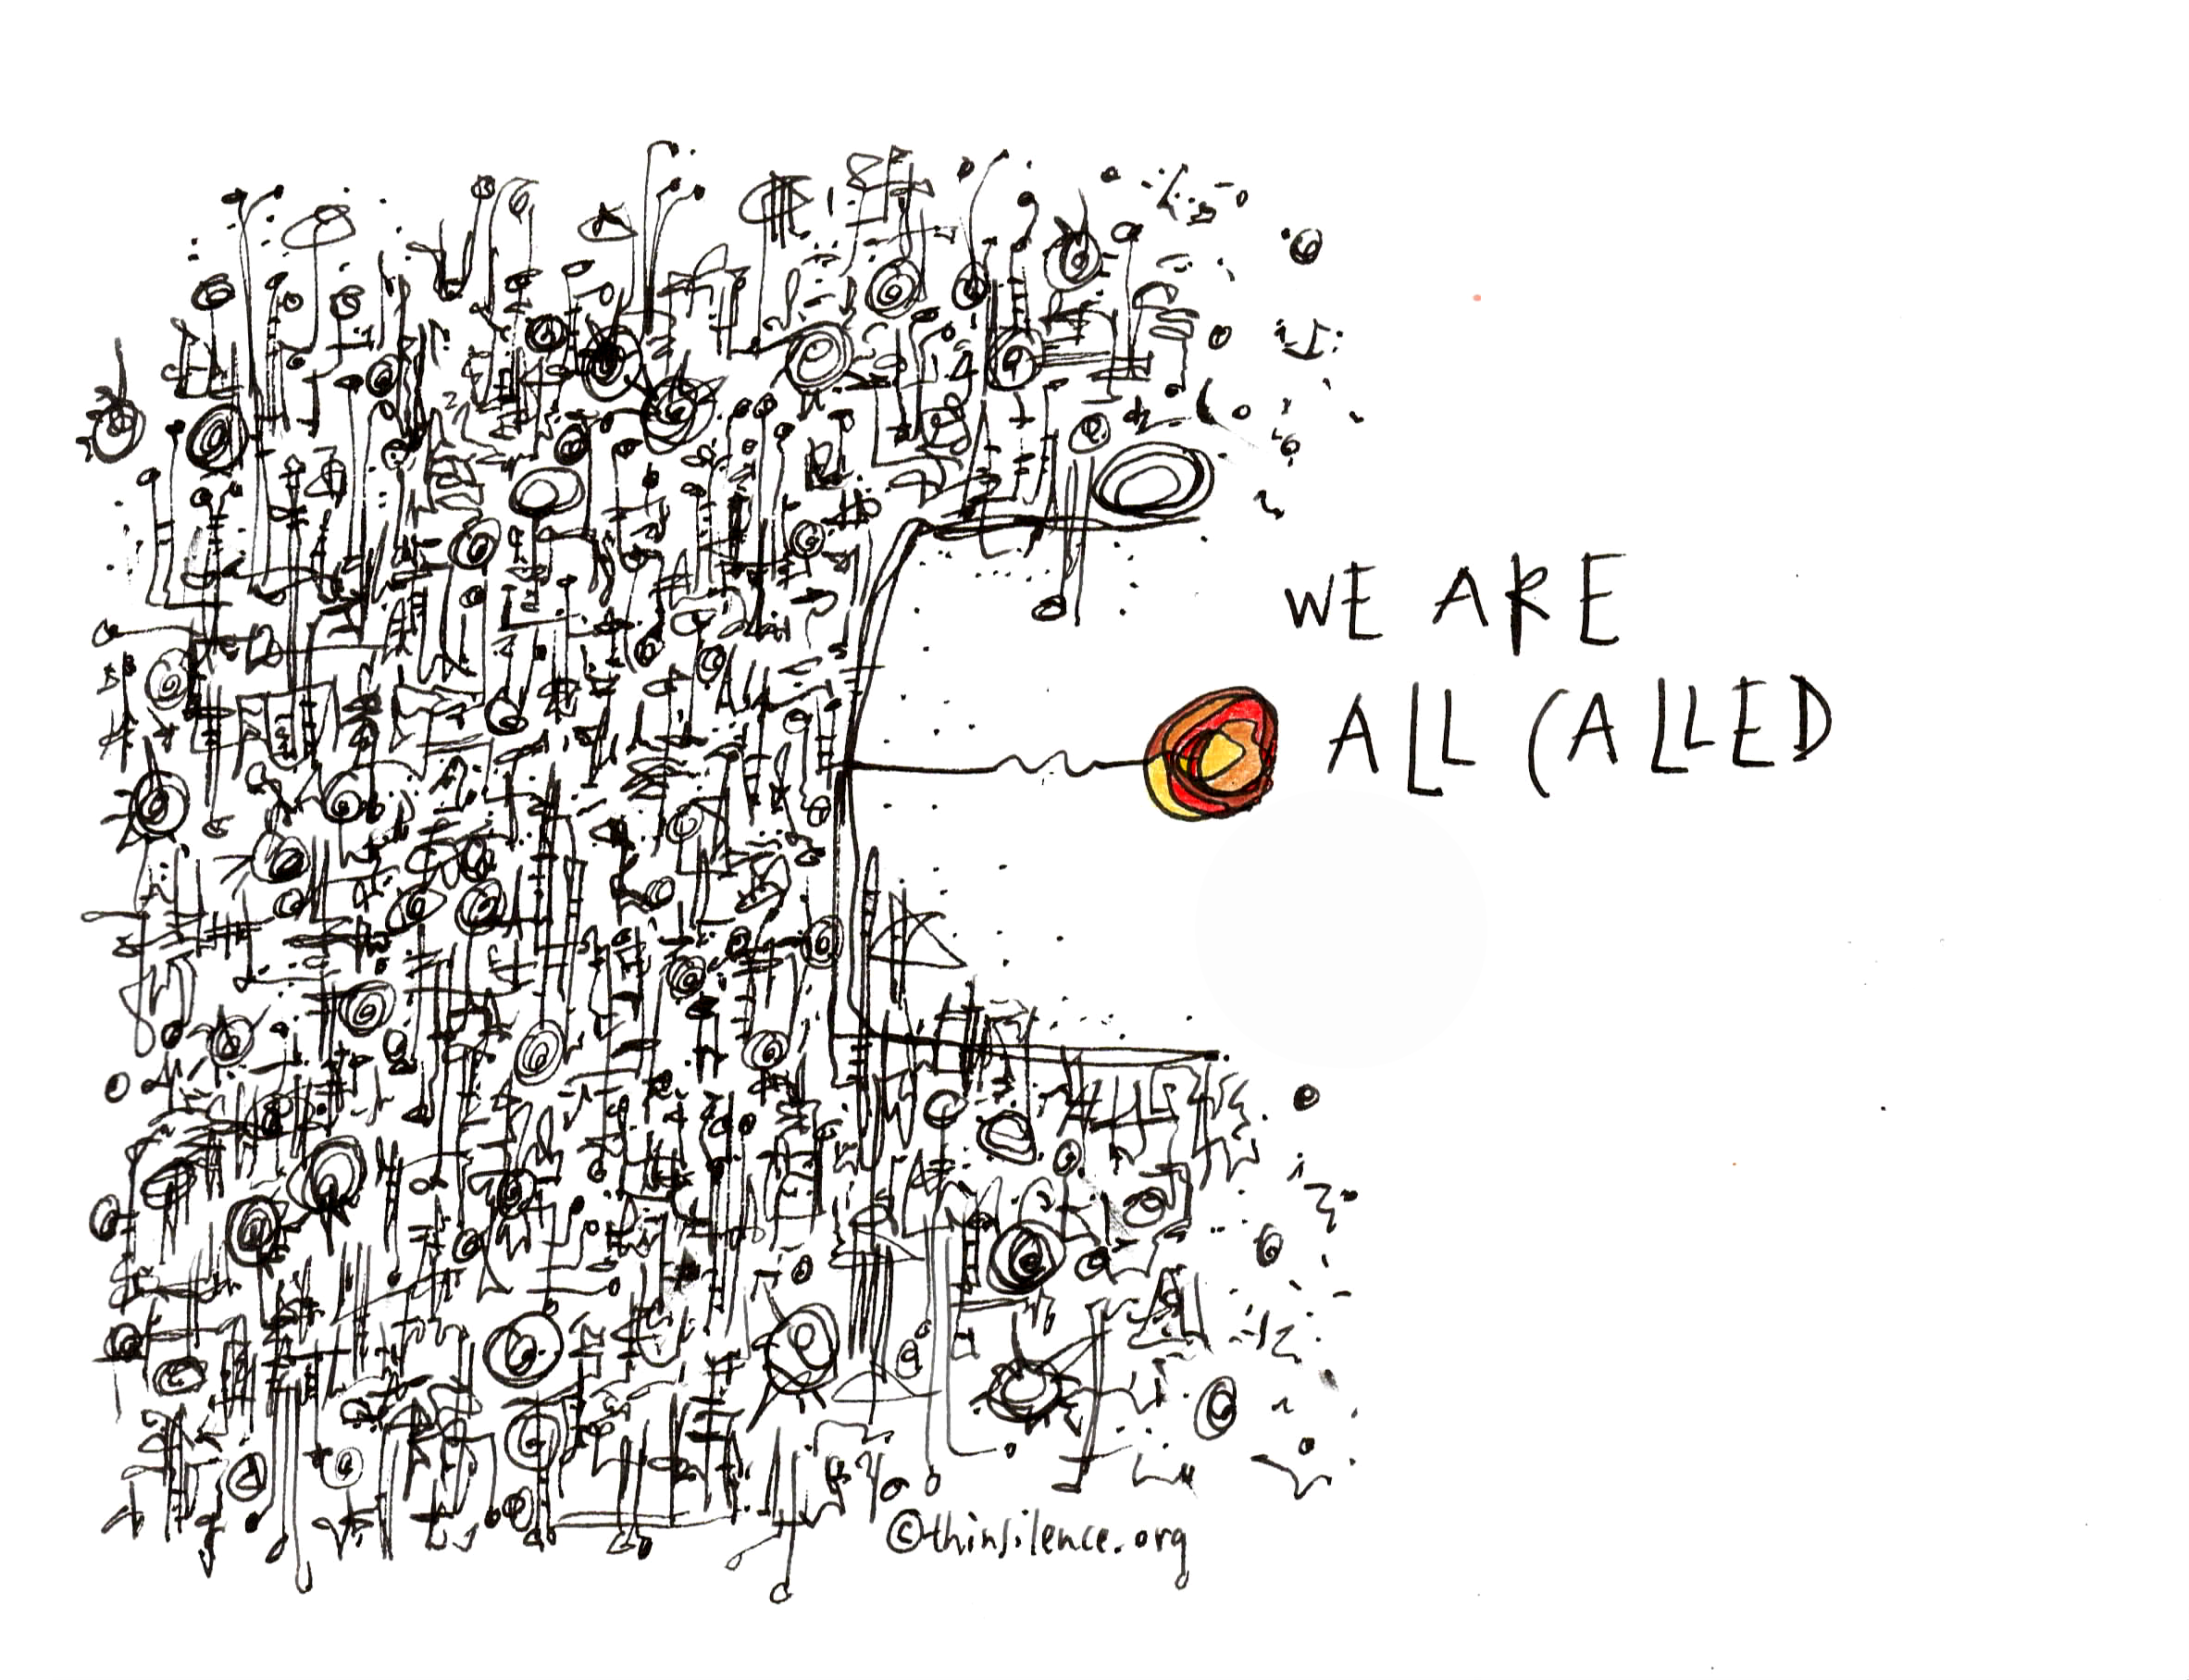 WE ARE
ALL CALLED
©thinsilence.org